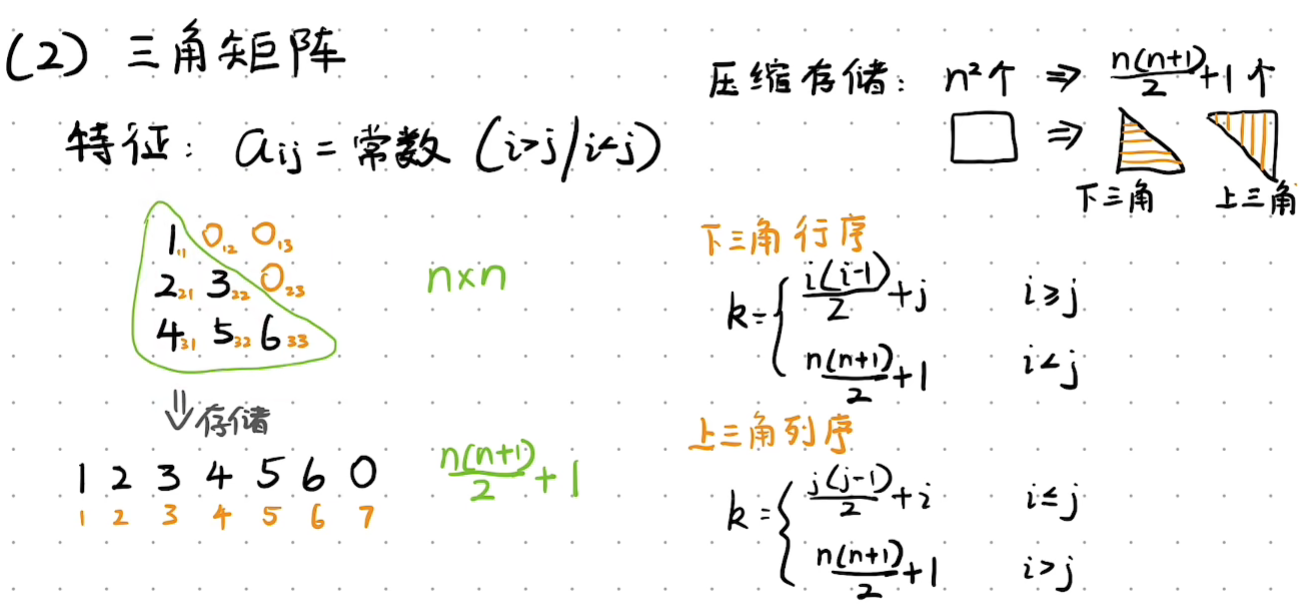 (2) 三角矩阵
特征: aij = 常数 (i>j/i<j)
1₁₁ 0₁₂ 0₁₃
2₂₁ 3₂₂ 0₂₃
4₃₁ 5₃₂ 6₃₃
n×n
⇓存储
1 2 3 4 5 6 0
1 2 3 4 5 6 7
n(n+1)/2 + 1
压缩存储: n²个 ⇒ n(n+1)/2 + 1 个
⇒
下三角 上三角
下三角行序
k = { i(i-1)/2 + j i≥j
n(n+1)/2 + 1 i<j
上三角列序
k = { j(j-1)/2 + i i≤j
n(n+1)/2 + 1 i>j